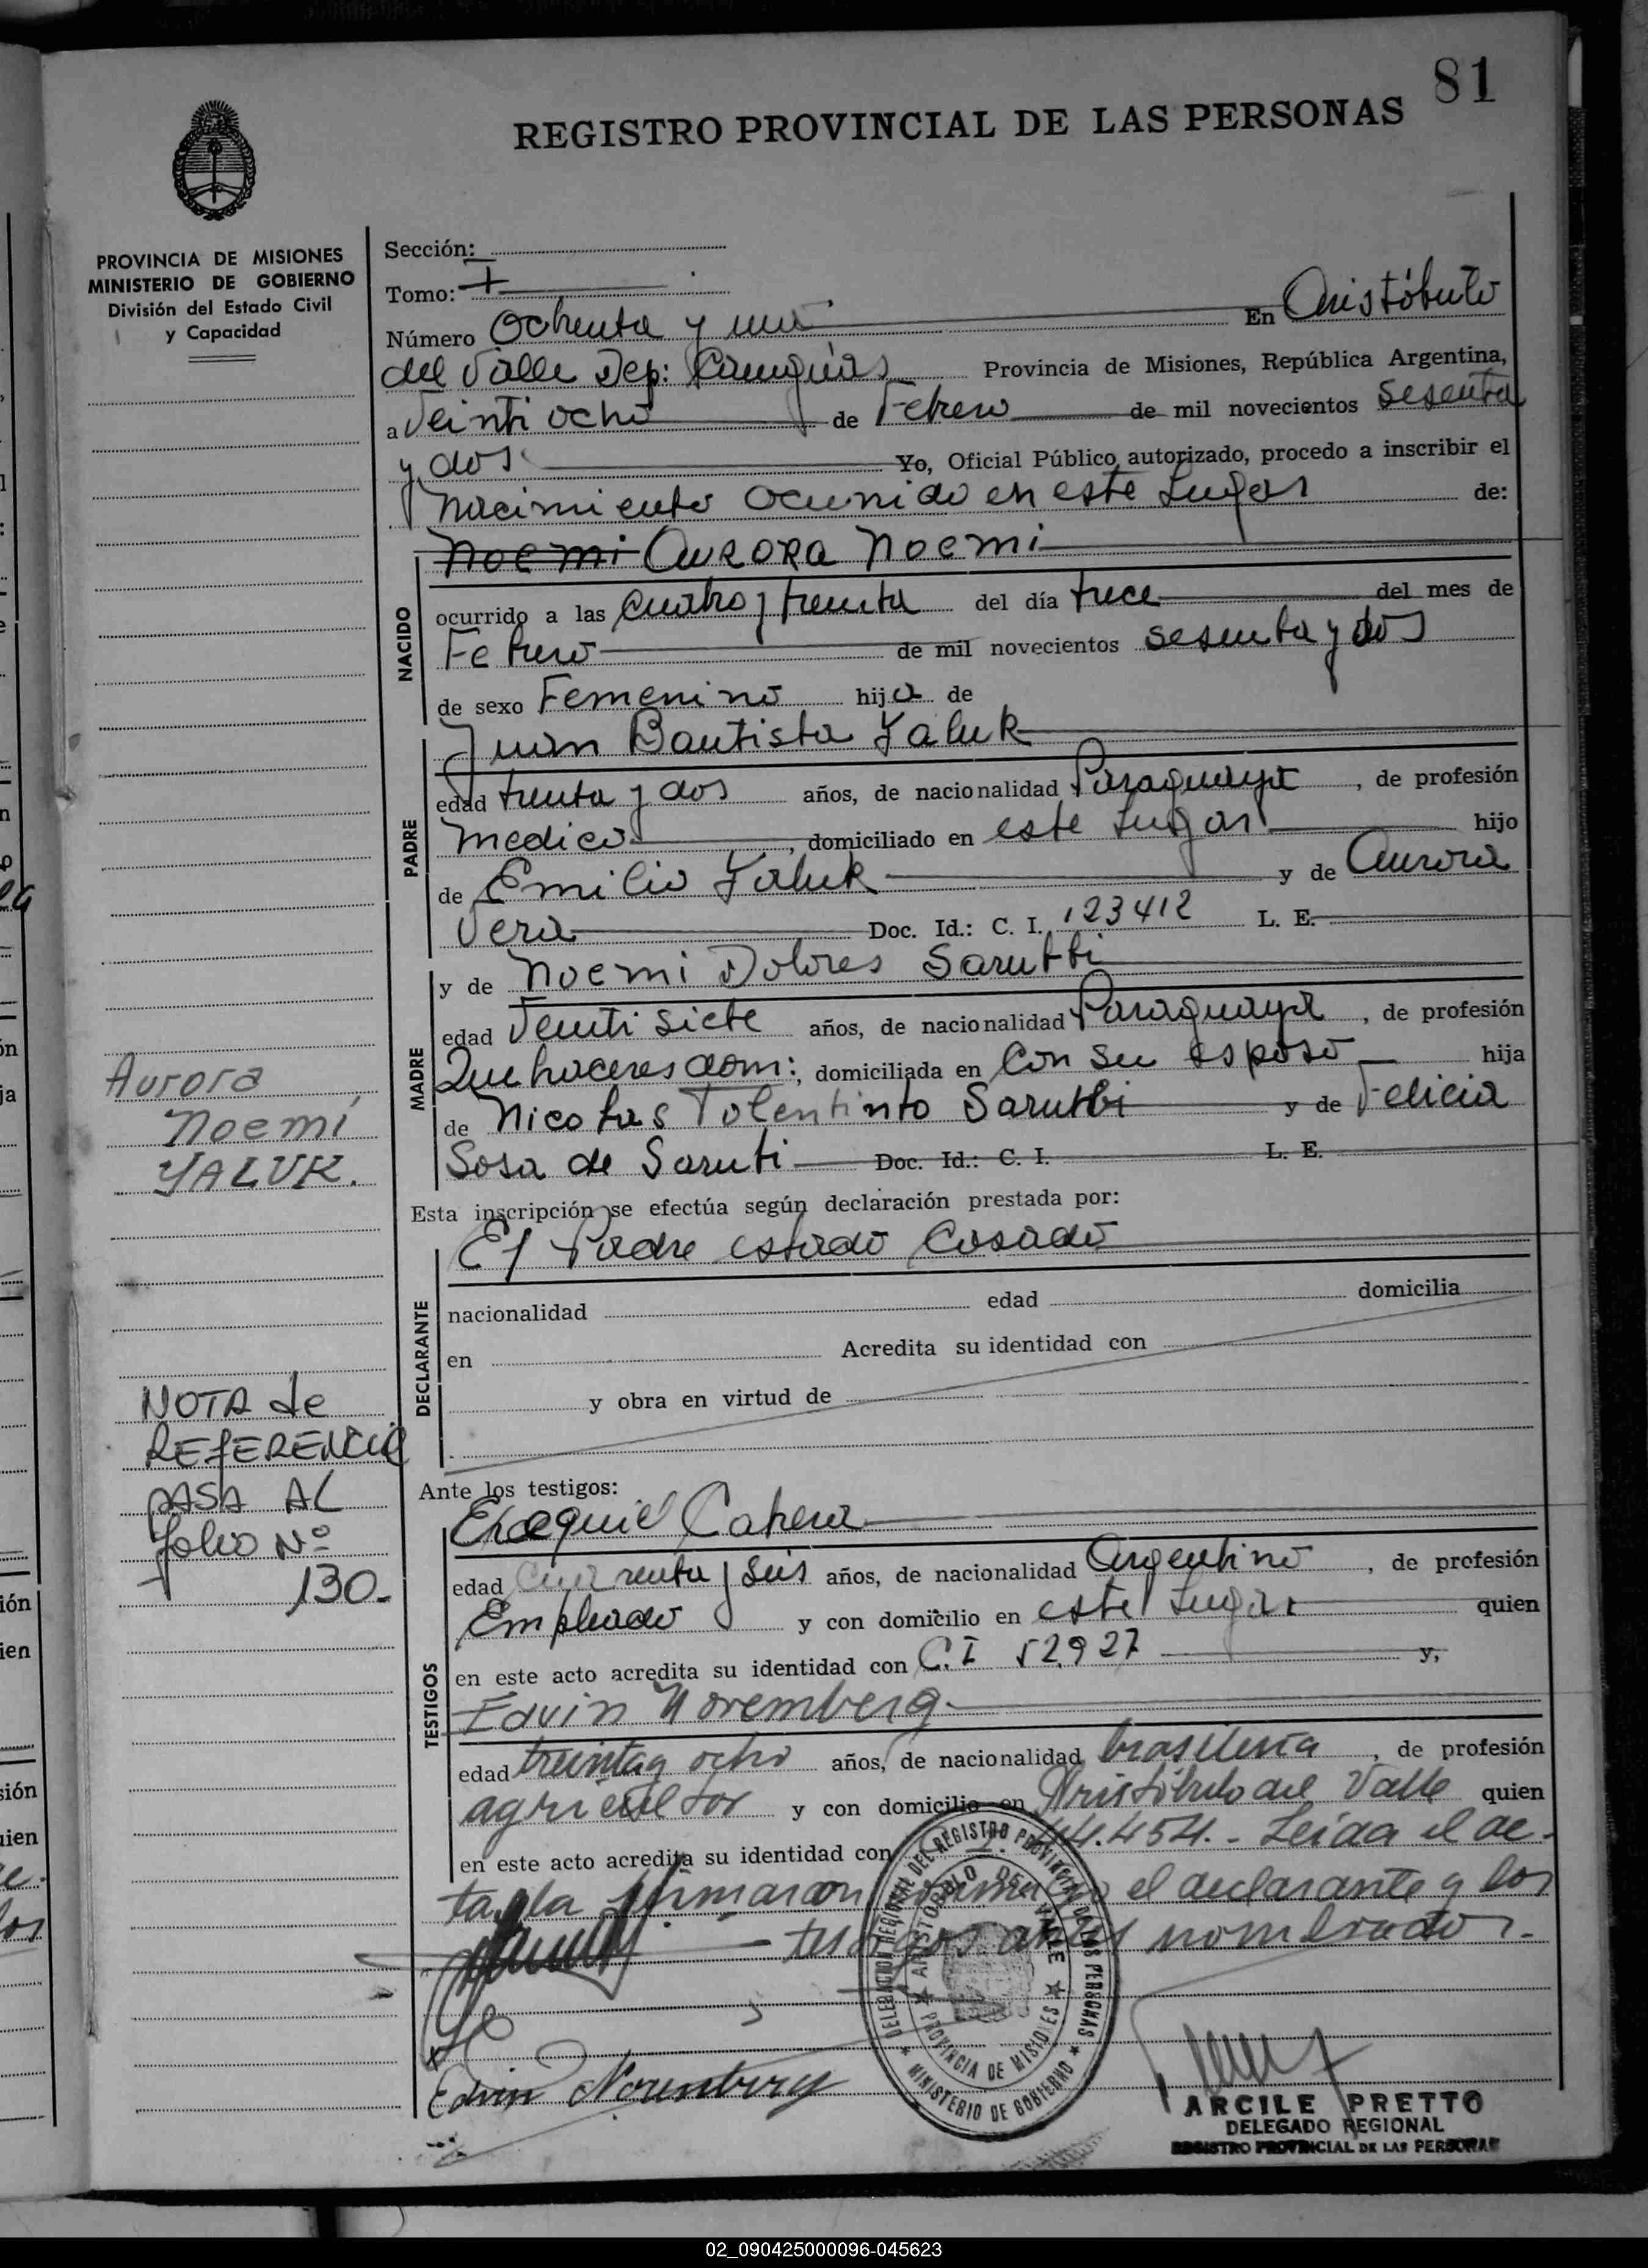 81
REGISTRO PROVINCIAL DE LAS PERSONAS
PROVINCIA DE MISIONES
MINISTERIO DE GOBIERNO
División del Estado Civil
y Capacidad
Sección:
Tomo:
Número Ochenta y uno En Aristóbulo
del Valle Dep: Cainguás Provincia de Misiones, República Argentina,
a Veinti ocho de Febrero de mil novecientos sesenta
y dos Yo, Oficial Público autorizado, procedo a inscribir el
Nacimiento ocurrido en este Lugar de:
Noemi Aurora Noemi
NACIDO
ocurrido a las cuatro y treinta del día trece del mes de
Febrero de mil novecientos sesenta y dos
de sexo Femenino hija de
Juan Bautista Yaluk
PADRE
edad treinta y dos años, de nacionalidad Paraguaya, de profesión
medico, domiciliado en este Lugar hijo
de Emilio Yaluk y de Aurora
Vera Doc. Id.: C. I. 123412 L. E.
MADRE
y de Noemi Dolores Sarubbi
edad Veinti siete años, de nacionalidad Paraguaya, de profesión
Quehaceres dom:, domiciliada en Con su esposo hija
de Nicolas Tolentinto Sarubbi y de Felicia
Sosa de Saruti Doc. Id.: C. I. L. E.
Aurora
Noemí
YALUK.
Esta inscripción se efectúa según declaración prestada por:
El Padre estado Casado
DECLARANTE
nacionalidad edad domicilia
en Acredita su identidad con
y obra en virtud de
NOTA de
REFERENCIA
PASA AL
folio Nº
130.-
Ante los testigos:
Exequiel Cabrera
TESTIGOS
edad Cuarenta y seis años, de nacionalidad Argentino, de profesión
Empleado y con domicilio en este Lugar quien
en este acto acredita su identidad con C. I 52927 y,
Edvin Noremberg
edad treinta y ocho años, de nacionalidad brasilera, de profesión
agricultor y con domicilio en Aristóbulo del Valle quien
en este acto acredita su identidad con 44.454.- Leída el ac-
ta, la firmaron el declarante y los
testigos antes nombrados.-
Edvin Norenberg
DELEGACION REGIONAL DEL REGISTRO PROVINCIAL DE LAS PERSONAS
★ MINISTERIO DE GOBIERNO ★
★ ARISTOBULO DEL VALLE ★
PROVINCIA DE MISIONES
ARCILE PRETTO
DELEGADO REGIONAL
REGISTRO PROVINCIAL DE LAS PERSONAS
02_090425000096-045623